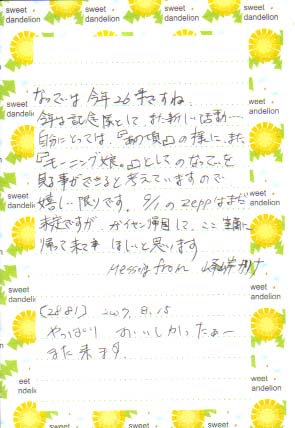 sweet dandelion
sweet dandelion
sweet dandelion
なっては今年26才ですね
今年は記念隊として、また新しい活動…
自分にとっては、『あの頃』の様に、また
『モーニング娘。』としてのなってを
見る事ができると考えていますので
嬉しい限りです。9/1のzeppはまだ
未定ですが、ガイセン帰国して、ここ生
帰って来て ほしいと思います
from
[2881] 2007.8.15
やっぱり おいしかったぁー
また来ます
sweet dandelion
sweet dandelion
sweet dandelion